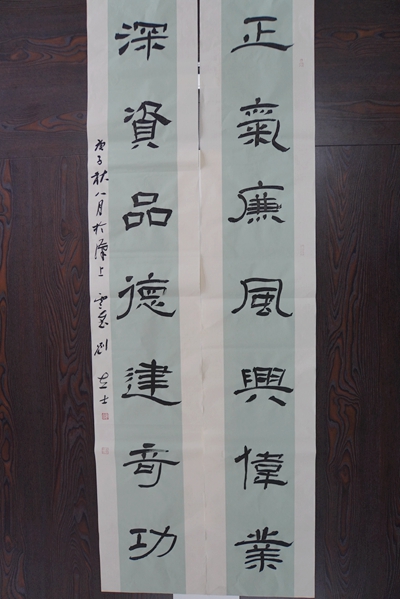 正氣廉風興偉業
深資品德建奇功
庚子秋八月於上劉